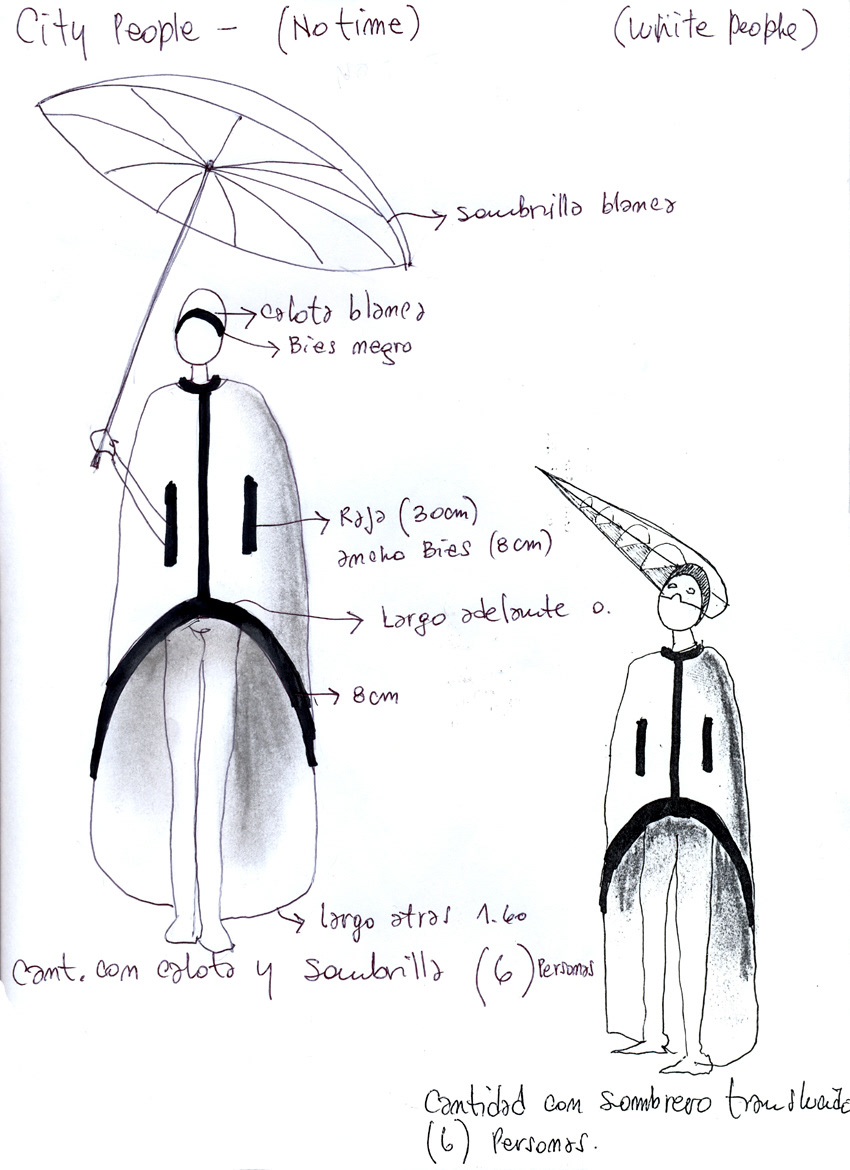 City People - (No time)
(White people)
sombrilla blanca
calota blanca
Bies negro
Raja (30cm)
ancho Bies (8cm)
Largo adelante 0.
8cm
largo atras 1.60
Cant. con calota y sombrilla (6) Personas
Cantidad con sombrero translucido
(6) Personas.